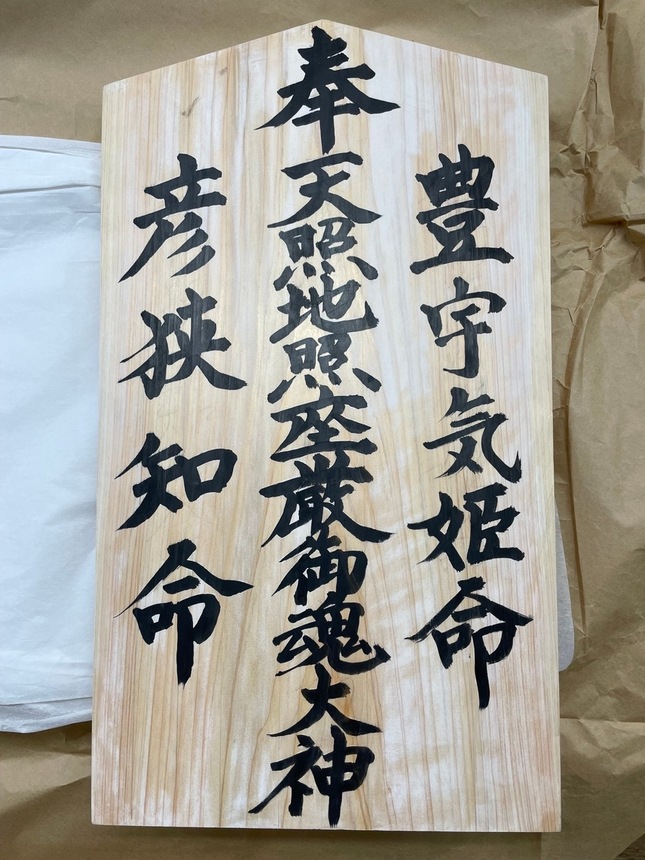 豊宇気姫命
奉天照地照座厳御魂大神
彦狭知命